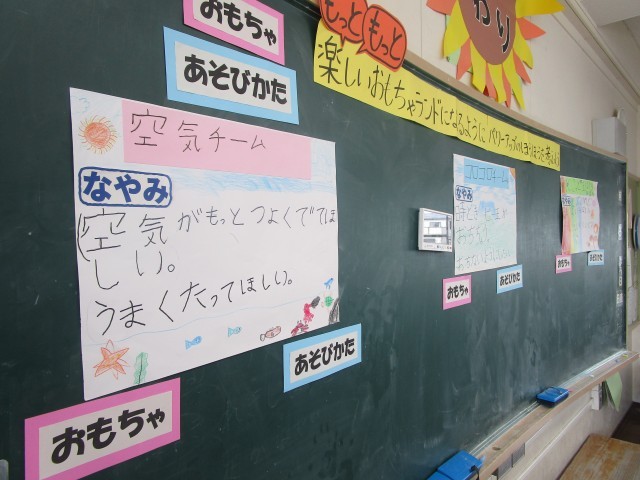 おもちゃ
あそびかた
もっと
もっと
楽しいおもちゃランドになるように パワーアップの
わり
空気チーム
なやみ
空気がもっとつよくでてほ
しい。
うまくたってほしい。
あそびかた
おもちゃ
コロコロチーム
なやみ
おもちゃ
あそびかた
なやみ
おもちゃ
あそびかた